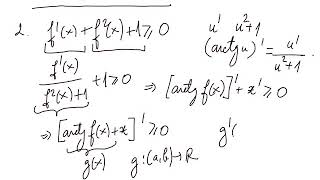 2. f'(x)+f²(x)+1⩾0
u' u²+1
(arctg u)' = u'/(u²+1).
f'(x)/(f²(x)+1) +1⩾0 ⇒ [arctg f(x)]' + x' ⩾ 0
⇒ [arctg f(x)+x]' ⩾ 0 g'(
g(x) g:(a,b)→R